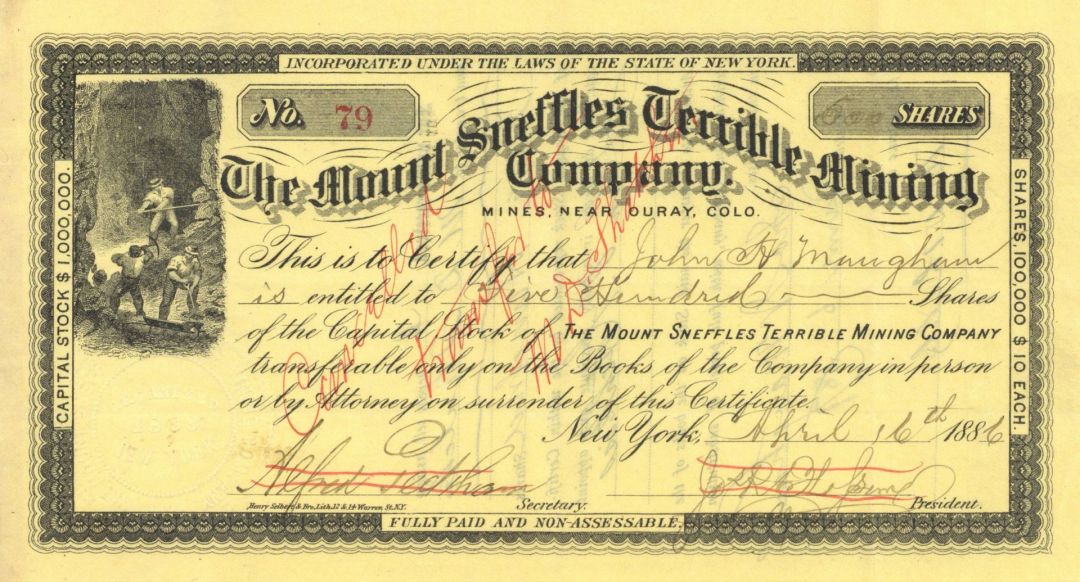 INCORPORATED UNDER THE LAWS OF THE STATE OF NEW YORK.
No. 79
SHARES
The Mount Sneffles Terrible Mining
Company.
MINES, NEAR OURAY, COLO.
CAPITAL STOCK $1,000,000.
SHARES, 100,000 $10 EACH.
This is to Certify that John H Maugham
is entitled to Five Hundred Shares
of the Capital Stock of THE MOUNT SNEFFLES TERRIBLE MINING COMPANY
transferable only on the Books of the Company in person
or by Attorney on surrender of this Certificate.
New York, April 16th 1886
Cancelled
transfd to
M D
Alfred
Secretary.
President.
Henry Seibert & Bro. Lith. 12 & 14 Warren St. N.Y.
FULLY PAID AND NON-ASSESSABLE.